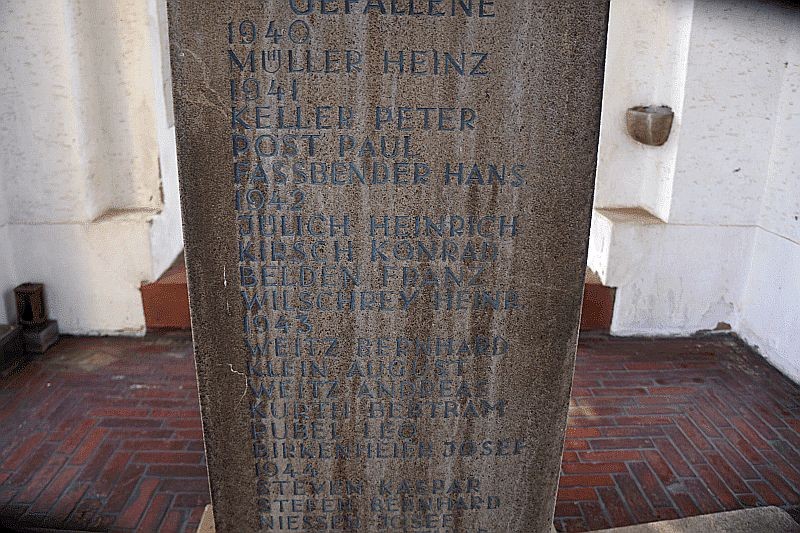 GEFALLENE
1940
MÜLLER HEINZ
1941
KELLER PETER
POST PAUL
FASSBENDER HANS
1942
JÜLICH HEINRICH
KIRSCH KONRAD
BELDEN FRANZ
WILSCHREY HEINR
1943
WEITZ BERNHARD
KLEIN AUGUST
WEITZ ANDREAS
KURTH BERTRAM
LEO
BIRKENHEIER JOSEF
1944
STEVEN KASPAR
STEFEN BERNHARD
NIESSER JOSEF